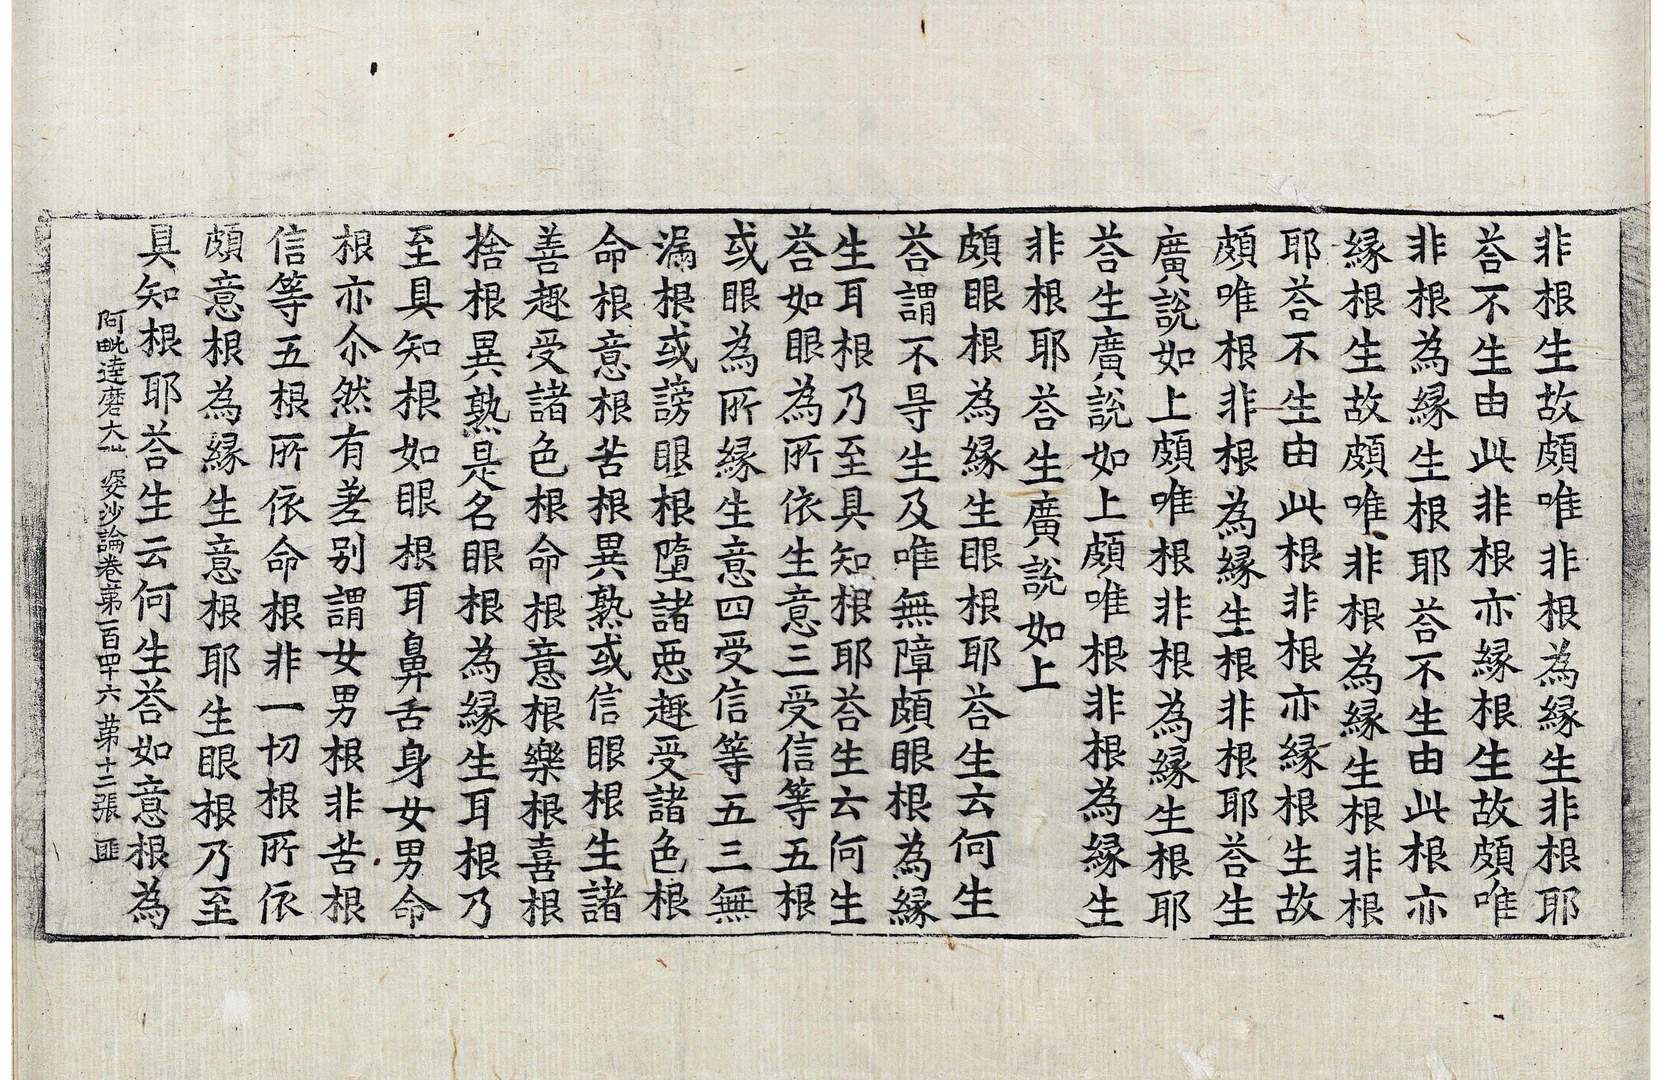 非根生故頗唯非根為縁生非根耶
荅不生由此非根亦縁根生故頗唯
非根為縁生根耶荅不生由此根亦
縁根生故頗唯非根為縁生根非根
耶荅不生由此根非根亦縁根生故
頗唯根非根為縁生根非根耶荅生
廣說如上頗唯根非根為縁生根耶
荅生廣說如上頗唯根非根為縁生
非根耶荅生廣說如上
頗眼根為縁生眼根耶荅生云何生
荅謂不㝵生及唯無障頗眼根為縁
生耳根乃至具知根耶荅生云何生
荅如眼為所依生意三受信等五根
或眼為所縁生意四受信等五三無
漏根或謗眼根墮諸惡趣受諸色根
命根意根苦根異熟或信眼根生諸
善趣受諸色根命根意根樂根喜根
捨根異熟是名眼根為縁生耳根乃
至具知根如眼根耳鼻舌身女男命
根亦尒然有差别謂女男根非苦根
信等五根所依命根非一切根所依
頗意根為縁生意根耶生眼根乃至
具知根耶荅生云何生荅如意根為
阿毗達磨大毗婆沙論卷第一百四十六 第十二張 匪